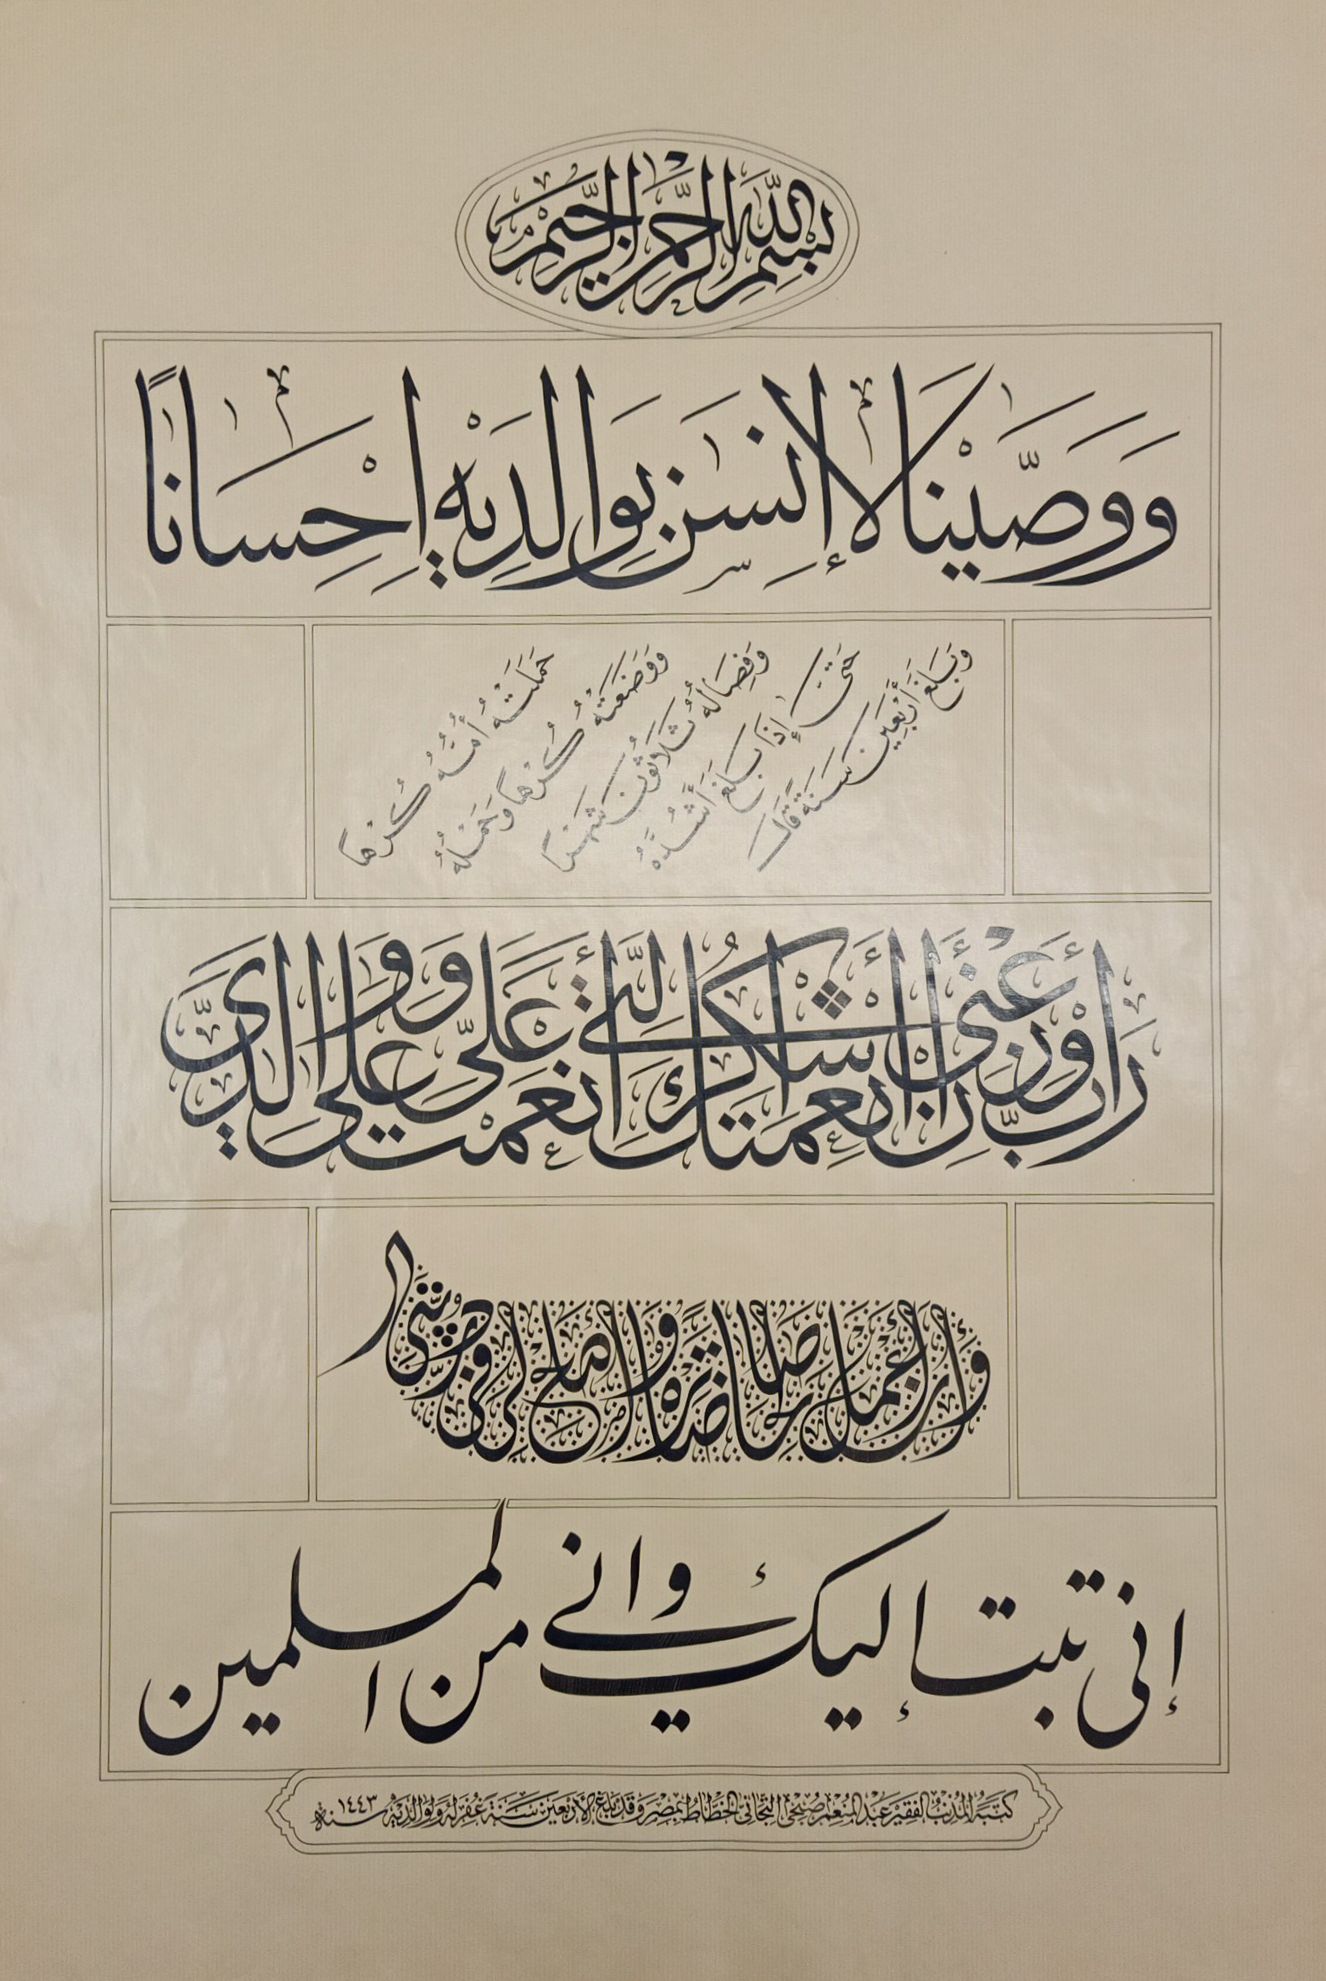 بسم الله الرحمن الرحيم
وَوَصَّيْنَا الْإِنسَٰنَ بِوَالِدَيْهِ إِحْسَانًا
حَمَلَتْهُ أُمُّهُ كُرْهًا
وَوَضَعَتْهُ كُرْهًا وَحَمْلُهُ
وَفِصَالُهُ ثَلَاثُونَ شَهْرًا
حَتَّى إِذَا بَلَغَ أَشُدَّهُ
وَبَلَغَ أَرْبَعِينَ سَنَةً قَالَ
رَبِّ أَوْزِعْنِي أَنْ أَشْكُرَ نِعْمَتَكَ الَّتِي أَنْعَمْتَ عَلَيَّ وَعَلَى وَالِدَيَّ
وَأَنْ أَعْمَلَ صَالِحًا تَرْضَاهُ وَأَصْلِحْ لِي فِي ذُرِّيَّتِي
إني تبت إليك وإني من المسلمين
كتبه المذنب الفقير عبد المنعم صبحي التجاني الخطاط بمصر وقد بلغ الأربعين سنة غفر له ولوالديه سنة ١٤٤٣